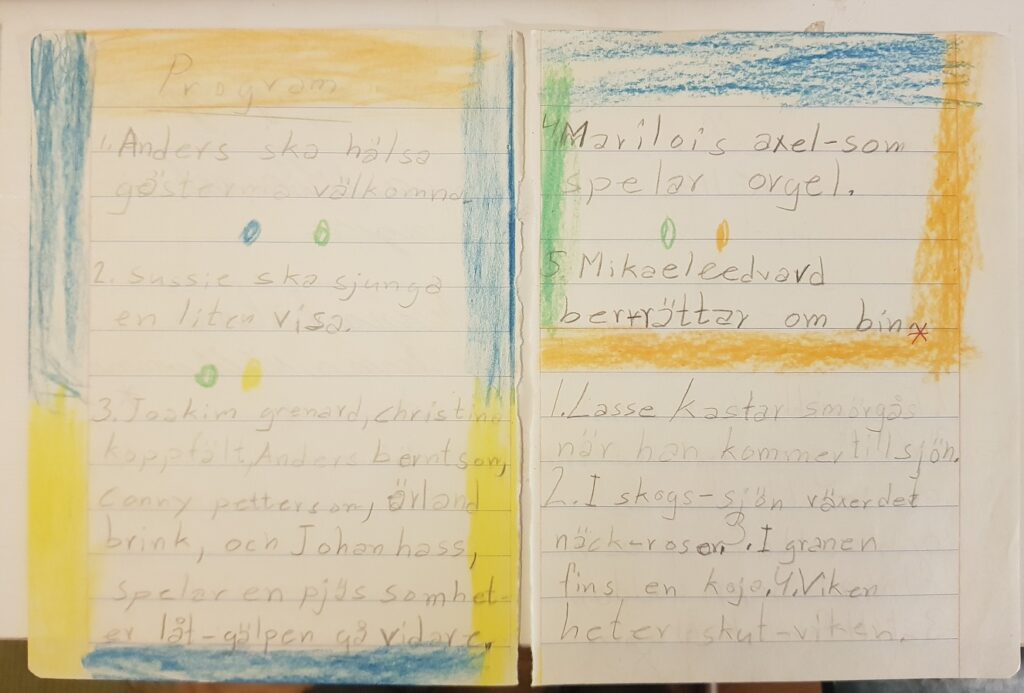 Program
1. Anders ska hälsa
gästerna välkomna.
2. Sussie ska sjunga
en liten visa.
3. Joakim grenard, christina
koppfält, Anders berntson,
Conny petterson, ärland
brink, och Johan hass,
spelar en pjäs somhet-
er låt-gälpen gå vidare.
4. Marilois axel-som
spelar orgel.
5. Mikaeleedvard
berrättar om bin
1. Lasse kastar smörgås
när han kommer till sjön.
2. I skogs-sjön växerdet
näck-rosor. 3. I granen
fins en koja. 4. Viken
heter skut-viken.